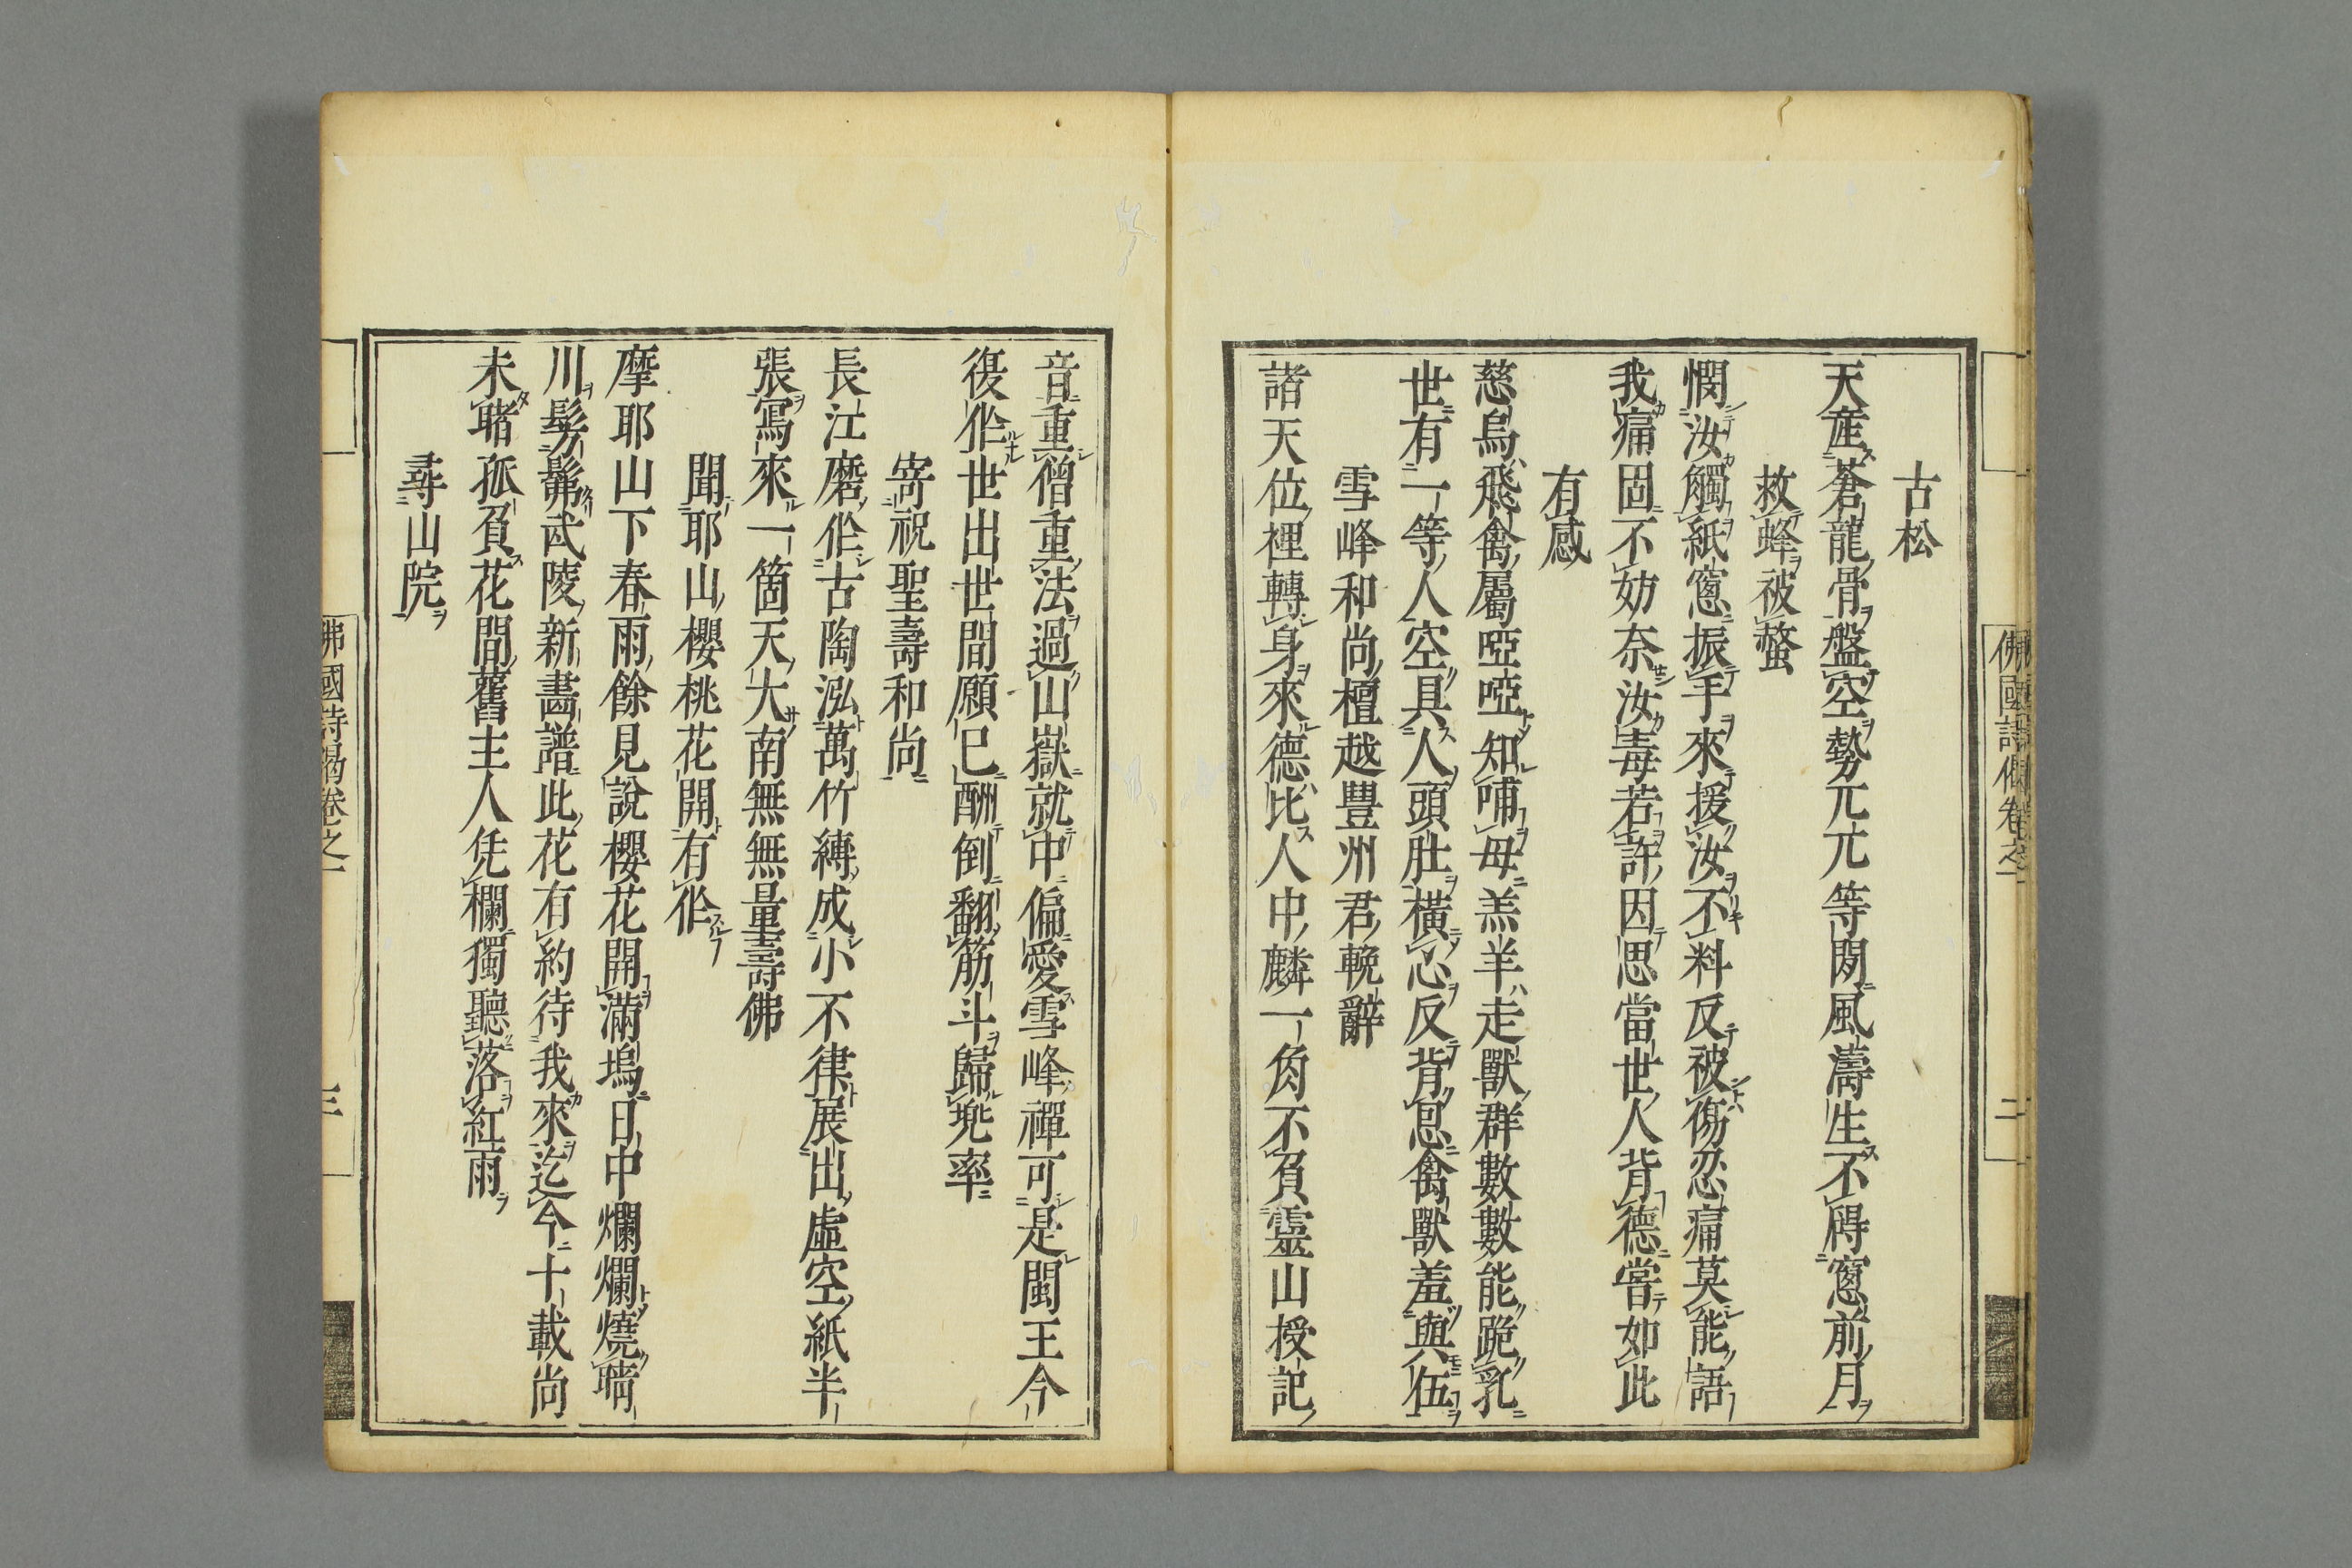 古松
天産蒼龍骨盤空勢兀兀等閑風濤生不碍窻前月
救蜂被螫
憫汝觸紙窻振手來援汝不料反被傷忍痛莫能語
我痛固不妨奈汝毒若許因思當世人背德嘗如此
有感
慈烏飛禽屬啞啞知哺母羔羊走獸群數數能跪乳
世有一等人空具人頭肚橫心反背恩禽獸羞與伍
雪峰和尚檀越豐州君輓辭
諸天位裡轉身來德比人中麟一角不負靈山授記
音重僧重法過山嶽就中偏愛雪峰禪可是閩王今
復作世出世間願已酬倒翻筋斗歸兜率
寄祝聖壽和尚
長江磨作古陶泓萬竹縛成小不律展出虛空紙半
張寫來一箇天大南無無量壽佛
聞耶山櫻桃花開有作
摩耶山下春雨餘見說櫻花開滿塢日中爛爛燒晴
川髣髴武陵新畵譜此花有約待我來迄今十載尚
未睹孤負花間舊主人凭欄獨聽落紅雨
尋山院
佛國詩偈卷之一
二
佛國詩偈卷之一
三